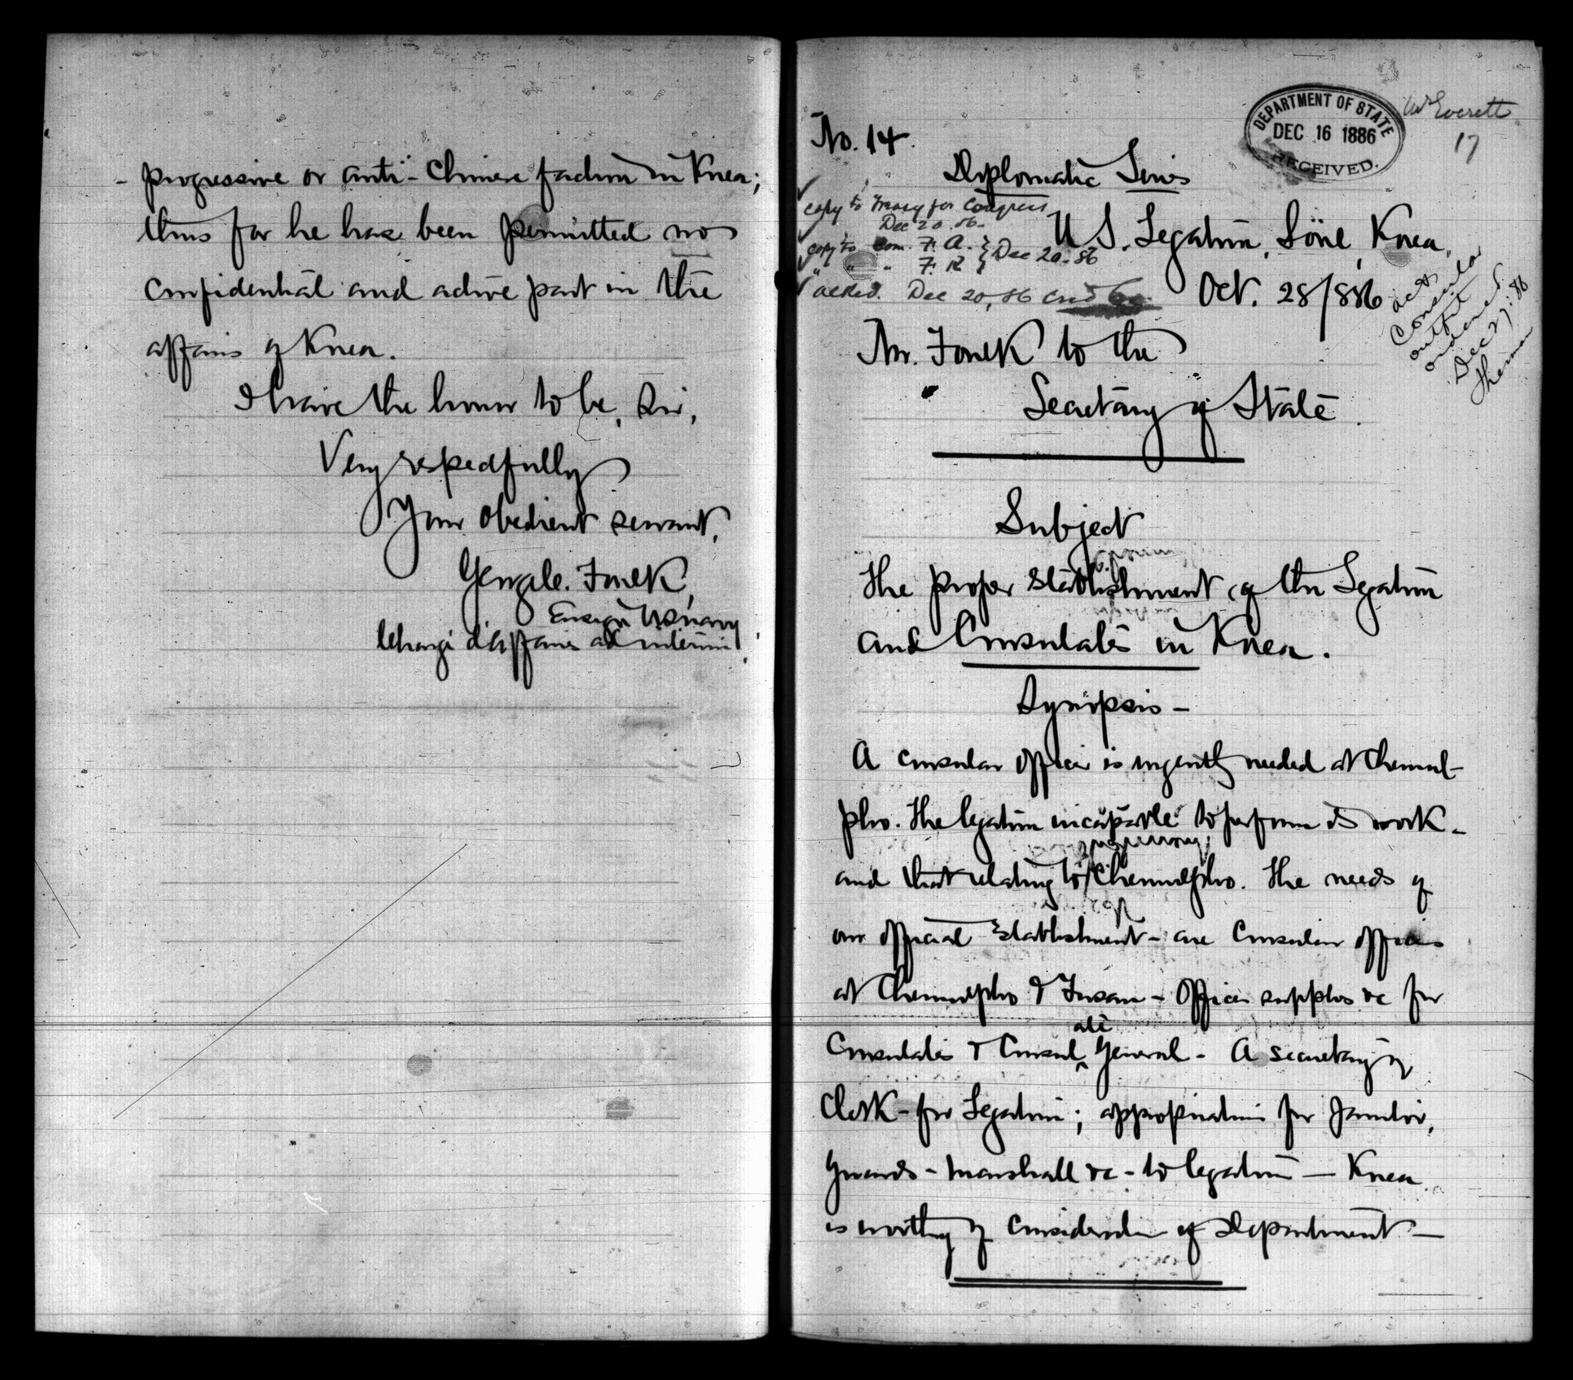 progressive or anti-Chinese faction in Korea;
thus far he has been permitted no
confidential and active part in the
affairs of Korea.
I have the honor to be, Sir,
Very respectfully
Your obedient servant,
George C. Foulk,
Ensign U.S. Navy
Chargé d'Affaires ad interim.
No. 14.
DEPARTMENT OF STATE
DEC 16 1886
RECEIVED.
Mr Everett
17
Diplomatic Series
copy to Treasy for Congress
Dec 20. 86.
copy to Com. F. A. } Dec 20. 86
" " " F. R. }
ackd. Dec 20, 86
U.S. Legation, Söul, Korea,
Oct. 28/886
Consular
outfit
ordered.
Dec 27: 86
Mr. Foulk to the
Secretary of State.
Subject
The proper establishment of the Legation
and Consulates in Korea.
Synopsis -
A consular officer is urgently needed at Chemul-
pho. The legation incapable to perform its work -
and that relating to Chemulpho. The needs of
our official establishment - are Consular officers
at Chemulpho & Fusan - Office supplies &c for
Consulates & Consulate General - A secretary or
Clerk - for Legation; appropriation for Janitor,
Guards - Marshall &c - to legation — Korea
is worthy of consideration of Department —